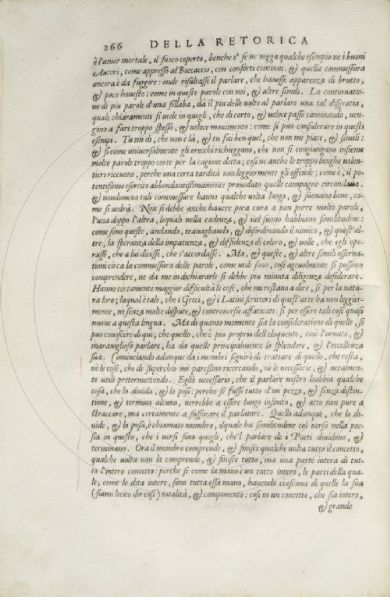 266 DELLA RETORICA
è l'amor mortale, il fuoco coperto, benche e' se ne vegga qualche esempio ne i buoni
Autori, come appresso al Boccaccio, con conforti continui. & quella commessura
ancora è da fuggire: onde risultasse il parlare, che havesse apparenza di brutto,
& poco honesto: come in queste parole con noi, & altre simili. La continuatio-
ne di piu parole d'una sillaba, dà il piu delle volte al parlare una tal disgratia,
quale chiaramente si vede in quegli, che di corto, & veloce passo caminando, ven-
gono a fare troppo spesso, & veloce movimento: come si puo considerare in questi
esempi. Tu mi di, che non è là, & tu sai ben quel, che non mi piace, & simili:
& si come universalmente gli orecchi richieggono, che non si congiungano insieme
molte parole troppo corte per la cagione detta; cosi ne anche le troppo lunghe volen-
tier riceuono, perche una certa tardità non leggiermente gli offende: come è, il po-
tentissimo esercito abbondantissimamente proveduto quelle campagne circondava,
& nondimeno tali commessure hanno qualche volta luogo, & suonano bene, co-
me si vedrà. Non si debbe anche havere poca cura a non porre molte parole,
l'una doppo l'altra, lequali nella cadenza, & nel suono habbiano similitudine:
come sono queste, andando, travagliando, & disordinando il nimico, & quest'al-
tre, la speranza della impatienza, & diffidenza di coloro, & volle, che egli ope-
rasse, che a lui dicesse, che s'accordasse. Ma, & queste, & altre simili osserva-
tioni circa la commessura delle parole, come utili sono, cosi agevolmente si possono
comprendere, ne da me in dichiararle si debbe piu minuta diligenza desiderare.
Hanno certamente maggior difficultà le cose, che mi restano a dire, si per la natu-
ra loro; laqual è tale, che i Greci, & i Latini scrittori di quest'arte ha non leggier-
mente, ne senza molte dispute, & controversie affaticati: si per essere tali cose quasi
nuove a questa lingua. Ma di quanto momento sia la consideratione di quelle, si
puo conoscere di qui; che quello, ch'è piu proprio dell'eloquente, co'l ornato, &
maraviglioso parlare, ha da quelle principalmente lo splendore, & l'eccellenza
sua. Cominciando adunque da i membri seguirò di trattare di quello, che resta,
ne le cose, che di soperchio mi paressino ricercando, ne le necessarie, & veramen-
te utili pretermettendo. Egliè necessario, che il parlare nostro habbia qualche
cosa, che lo divida, & lo posi: perche se fusse tutto d'un pezzo, & senza distin-
tione, & termino alcuno, verrebbe a essere lungo infinito, & atto non pure a
straccare, ma certamente a suffocare il parlatore. Quello adunque, che lo di-
vide, & lo posa, è chiamato membro, ilquale ha similitudine col verso nella poe-
sia in questo, che i versi sono quegli, che'l parlare de i Poeti dividono, &
terminano. Ora il membro comprende, & finisce qualche volta tutto il concetto,
qualche volta non lo comprende, & finisce tutto, ma una parte intera di tut-
to l'intero concetto: perche si come la mano è un tutto intero, le parti della qua-
le, come le dita intere, sono tutta essa mano, havendo ciascuna di quelle la sua
(siami lecito dir cosi) totalità, & componimento: cosi in un concetto, che sia intero,
& grande